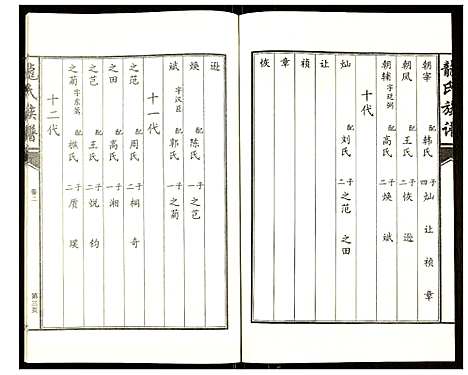 龍氏族譜
朝宰 配韩氏 四子 灿 让 祯 章
朝凤 配王氏 二子 恢 逊
朝辅 字廷弼 配高氏 二子 焕 斌
十代
灿 配刘氏 二子 之范 之田
让
祯
章
恢
逊
焕 配陈氏 一子 之芑
斌 字汉臣 配郭氏 一子 之蔺
十一代
之范 配周氏 二子 桐 奇
之田 配高氏 一子 湘
之芑 配王氏 二子 悦 钧
之蔺 字东菴 配侯氏 二子 质 璞
十二代
龍氏族譜
卷二
第三页